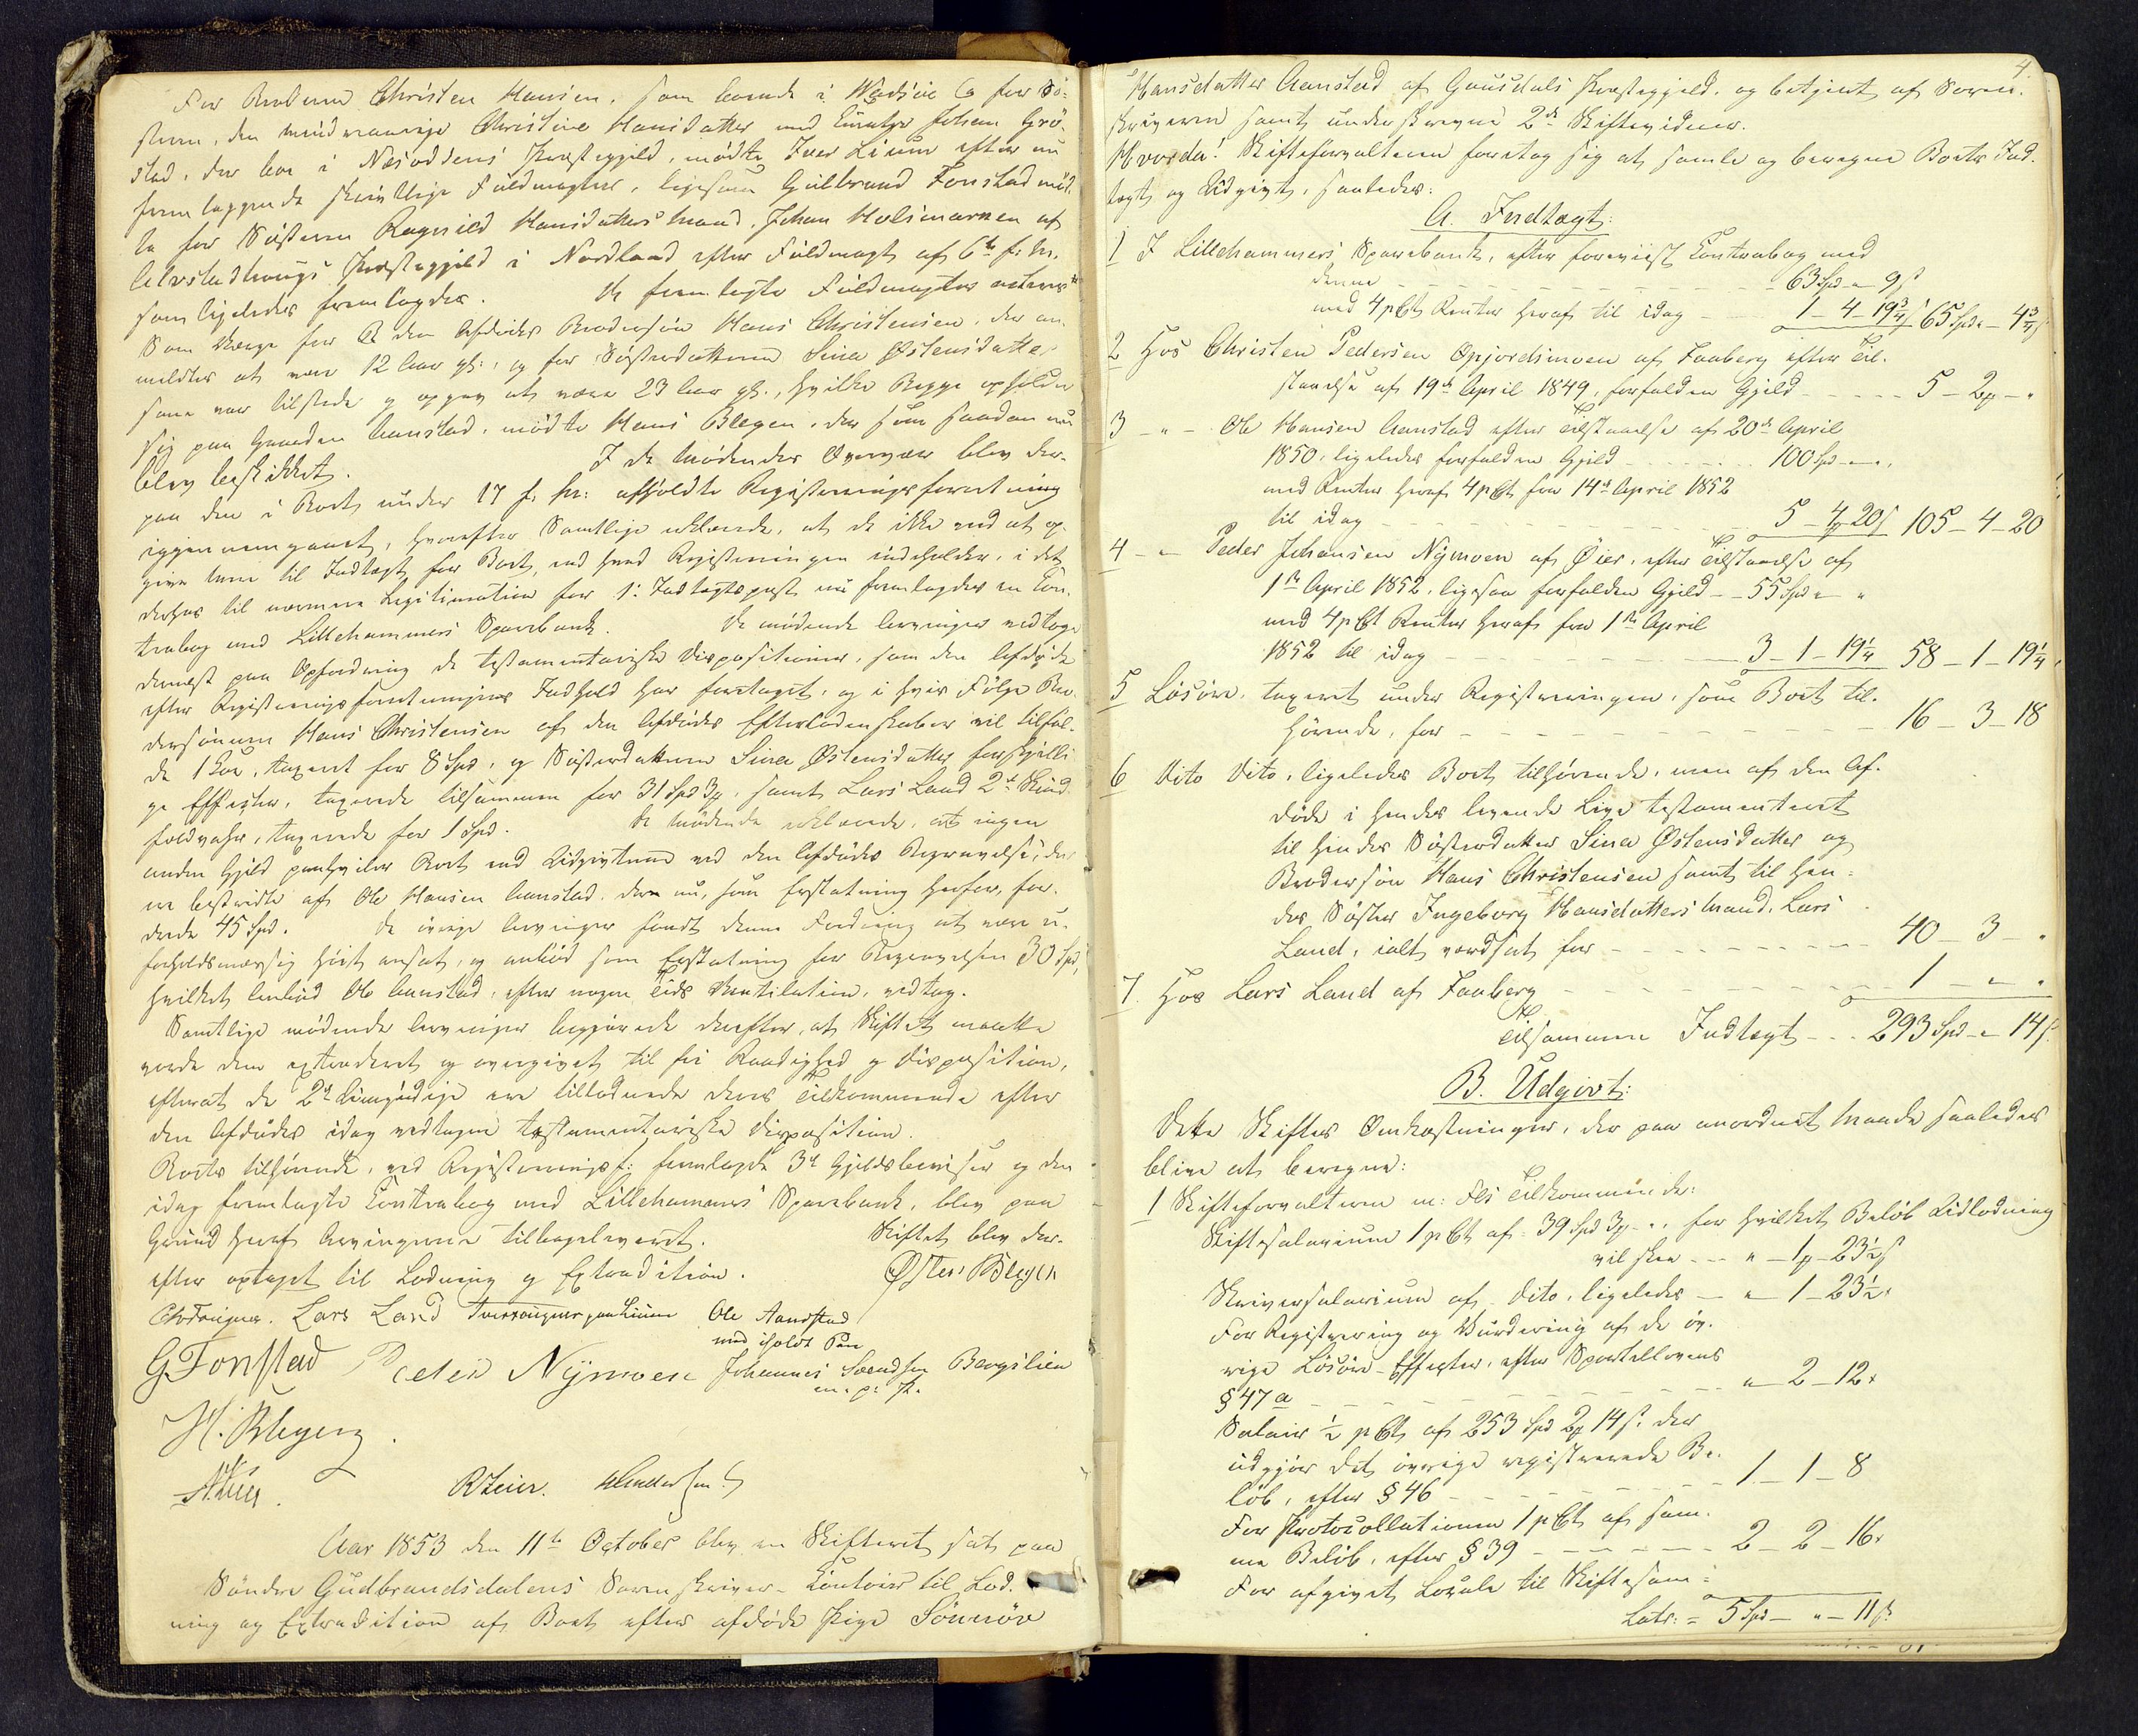 For Broderen Christen Hansen, som boende i Wadsøe & for Sø-
steren, den mindreaarige Christine Hansdatter med Curator Johan Grø-
stad, der boe i Næsoddens Præstegjeld, mødte Iver Linum efter nu
fremlæggende skriftlige Fuldmagter, ligesom Gulbrand Fonstad mød-
te for Søsteren Ragnild Hansdatters Mand, Johan Holsmarken af
Alvstadhougs Præstegjeld i Nordland efter Fuldmagt af 6te f. M.
som ligeledes fremlagdes. De fremlagte Fuldmagter
Som Værge for den Afdødes Brodersøn Hans Christensen, der an-
meldtes at være 12 Aar gl:, og for Søsterdatteren Sina Østensdatter
som var tilstede og opgav at være 23 Aar gl., hvilke Begge opholder
sig paa Gaarden Aanstad, mødte Hans Blegen, der som saadan nu
blev beskikket. I de Mødendes Overvær blev der-
paa den i Boet under 17 f. M: afholdte Registreringsforretning
igjennemgaaet, hvorefter Samtlige erklærede, at de ikke ved at op-
give mere til Indtægt for Boet, end hvad Registreringen indeholder, i det
derhos til nærmere Legitimation for 1: Indtægtspost nu fremlagdes en Con-
trabog med Lillehammers Sparebank. De mødende Arvinger vedtoge
dernæst paa Opfordring de testamentariske Dispositioner, som den Afdøde
efter Registreringsforretningens Indhold har foretaget, og i hvis Følge Bro-
dersønnen Hans Christensen af den Afdødes Efterladenskaber vil tilfal-
de 1 Koe, taxeret for 8 Spd, og Søsterdatteren Sina Østensdatter forskjelli-
ge Effecter, taxerede tilsammen for 31 Spd 3 , samt Lars Land 2de Skind-
foldvahr, taxerede for 1 Spd. De Mødende erklærede, at ingen
anden Gjeld paahviler Boet end Udgivterne ved den Afdødes Begravelse, der
ere bestridte af Ole Hansen Aanstad, der nu, som Erstatning herfor, for-
drede 45 Spd. De øvrige Arvinger fandt denne Fordring at være u-
forholdsmæssig høit ansat, og anbød som Erstatning for Begravelsen 30 Spd,
hvilket Anbud Ole Aanstad, efter nogen Tids Ventilation, vedtog.
Samtlige mødende Arvinger begjærede derefter, at Skiftet maatte
vorde dem extraderet og overgivet til fri Raadighed og Disposition,
efterat de 2de Umyndige ere tilloddede deres Tilkommende efter
den Afdødes idag vedtagne testamentariske Disposition.
Boets tilhørende, ved Registreringsf: fremlagde 3de Gjeldsbeviser og den
idag fremlagte Contrabog med Lillehammers Sparebank, blev paa
Grund heraf Arvingerne tilbageleveret. Skiftet blev der-
efter optaget til Lodning og Extradition. Østen Blegen
Lars Land Ole Aandstad
med iholdt Pen
G. Fonstad Peder Nymoen Johannes Svendsen Bergslien
m. p. P.
H. Blegen.
Aar 1853 den 11te October blev en Skifteret sat paa
Søndre Gudbrandsdalens Sorenskriver-Contoir til Lod-
ning og Extradition af Boet efter afdøde Pige Sønnøve
4.
Hansdatter Aanstad af Gausdals Præstegjeld, og betjent af Soren-
skriveren samt underskrevne 2de Skiftevidner.
Hvorda! Skifteforvalteren foretog sig at samle og beregne Boets Ind-
tægt og Udgivt, saaledes:
A. Indtægt:
1 I Lillehammers Sparebank, efter foreviist Contrabog med
denne - - - 63 Spd " 9 s
med 4 pCt Renter heraf til idag - 1 - 4 - 19 3/4 s 65 Spd " - 4 3/4 s
2 Hos Christen Pedersen Opjordsmoen af Faaberg efter Til-
staaelse af 19de April 1849, forfalden Gjeld - - - 5 - 2 - "
3 - " - Ole Hansen Aanstad efter Tilstaaelse af 20de April
1850, ligeledes forfalden Gjeld - - - 100 Spd - " "
med Renter heraf 4 pCt fra 14de April 1852
til idag - - - 5 - 4 20 s 105 - 4 - 20
4 - " Peder Johansen Nymoen af Øier, efter Tilstaaelse af
1ste April 1852, ligesaa forfalden Gjeld - - 55 Spd " "
med 4 pCt Renter heraf fra 1ste April
1852 til idag - - - 3 - 1 - 19 1/4 58 - 1 - 19 1/4
5 Løsøre, taxeret under Registreringen, som Boet til-
hørende, for - - - 16 - 3 - 18
6 Dito Dito, ligeledes Boet tilhørende, men af den Af-
døde i hendes levende Live testamenteret
til hendes Søsterdatter Sina Østensdatter og
Brodersøn Hans Christensen samt til hen-
des Søster Ingeborg Hansdatters Mand, Lars
Land, ialt værdsat for - - - 40 - 3 - "
7. Hos Lars Land af Faaberg - - - 1 - " - "
Tilsammen Indtægt - - - 293 Spd - " 14 s.
B. Udgivt:
Dette Skiftes Omkostninger, der paa anordnet Maade saaledes
blive at beregne:
1 Skifteforvalteren m: Fls Tilkommende:
Skiftesalarium 1 pCt af 39 Spd 3 - ", for hvilket Beløb Udlodning
vil skee - - " - 1 - 23 1/2 s
Skriversalarium af dito, ligeledes - " - 1 - 23 1/2 "
For Registrering og Vurdering af de øv-
rige Løsøre-Effecter, efter Sportellovens
§ 47 a - - - " - 2 - 12 "
Salair 1/2 pCt af 253 Spd 2 14 s. der
udgjør det øvrige registrerede Be-
løb, efter § 46 - - - 1 - 1 - 8
For Protocollationen 1 pCt af sam-
me Beløb, efter § 39 - - - 2 - 2 - 16 "
For afgivet Locale til Skiftesam-
Latr: = 5 Spd - " - 11 s